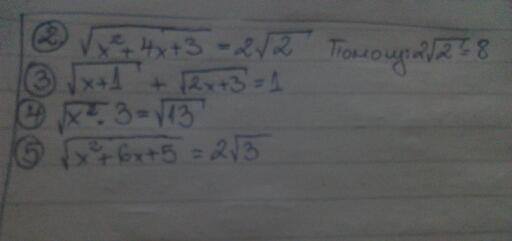 ② √(x²+4x+3) = 2√2 Помощ: 2√2² = 8
③ √(x+1) + √(2x+3) = 1
④ √(x²·3) = √13
⑤ √(x²+6x+5) = 2√3